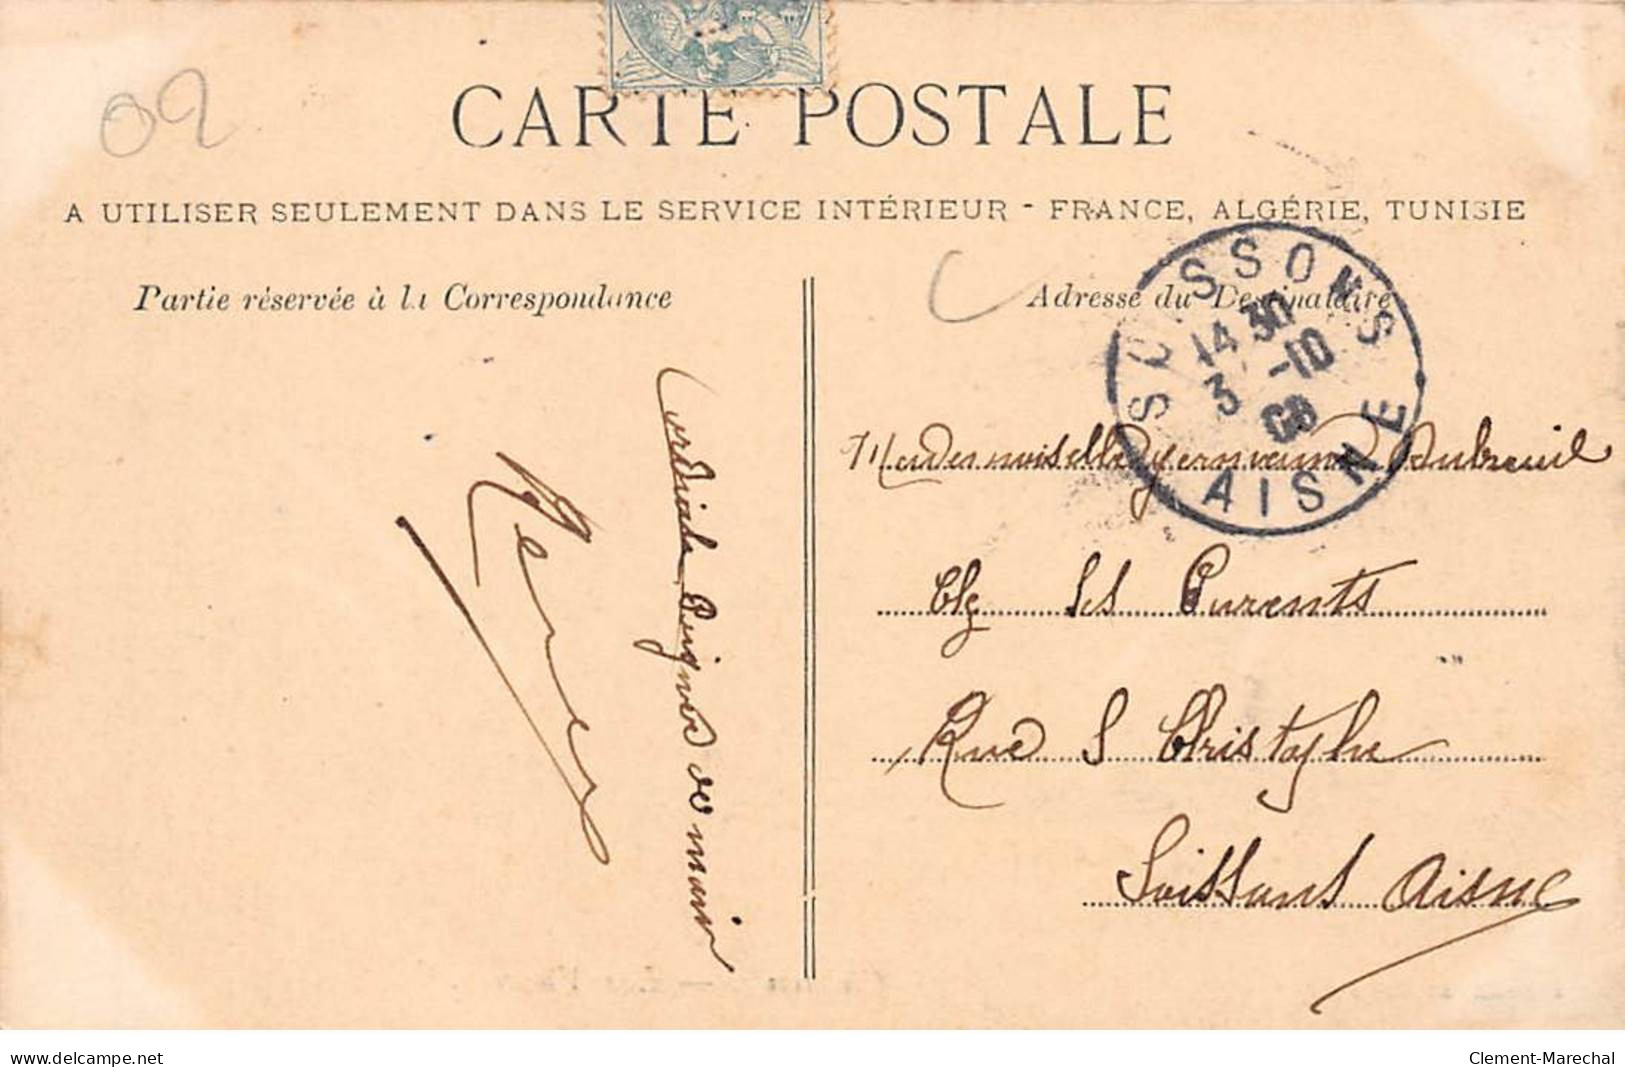 09
CARTE POSTALE
A UTILISER SEULEMENT DANS LE SERVICE INTÉRIEUR - FRANCE, ALGÉRIE, TUNISIE
Partie réservée à la Correspondance
Adresse du Destinataire
SOISSONS
14 30
3 -10
AISNE
Cordiale Poignée de main
Mademoiselle Dubreuil
Chz Ses Parents
Rue S Christophe
Soissons Aisne
www.delcampe.net
Clement-Marechal